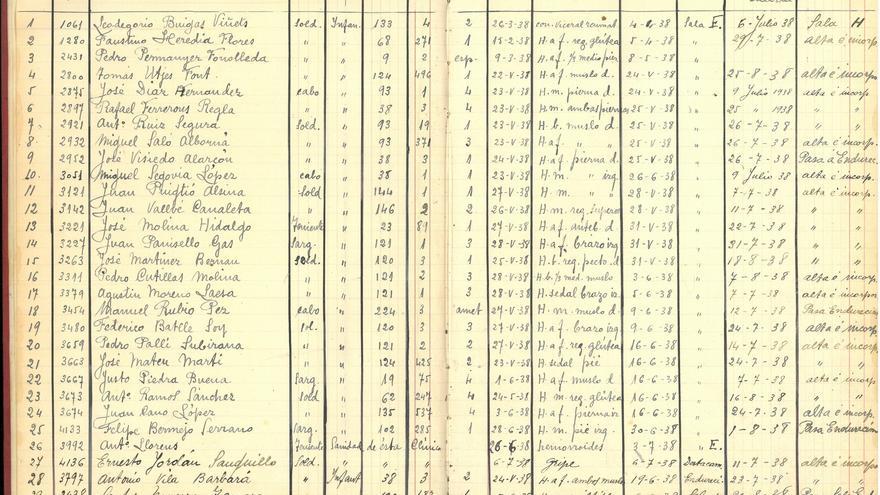 1 1061 Leodegario Buigas Viñels Sold. Infan. 133 4 2 26-3-38 4-4-38 Sala E. 6-Julio-38 Sala H
2 1280 Faustino Heredia Flores " " 68 271 1 15-2-38 H. a f. reg. glútea 5-4-38 " 29-7-38 alta é incorp.
3 2431 Pedro Permanyer Fonolleda " " 9 2 esp. 9-3-38 H. a f. ½ medio pier. 8-5-38 "
4 2800 Tomás Utjes Font " " 124 496 1 22-V-38 H. a f. muslo d. 24-V-38 " 25-8-38 alta é incorp
5 2875 José Diaz Hernandez cabo " 93 1 4 23-V-38 H. m. pierna d. 24-V-38 " 9 Julio 1938 alta é incorp
6 2897 Rafael Ferrerous Regla " " 38 3 4 23-V-38 H. m. ambas piernas 25-V-38 " 25 " 1938 " "
7 2921 Antº Ruiz Segura Sold. " 93 19 1 23-V-38 H. b. muslo d. 25-V-38 " 26-7-38 " "
8 2932 Miguel Salo Alborna " " 93 371 3 23-V-38 H. a f. " " 25-V-38 " 26-7-38 alta é incorp.
9 2952 José Visiedo Alarcon " " 38 3 1 24-V-38 H. a f. pierna d. 25-V-38 " 26-7-38 Pasa á Endurec.
10. 3051 Miguel Segovia López cabo " 35 1 1 23-V-38 H. m. " izq. 26-6-38 " 9 Julio 38 alta é incorp.
11 3121 Juan Puigtió Alsina Sold " 144 1 1 27-V-38 H. m. " " 28-V-38 " 7-7-38 alta é incorp.
12 3142 Juan Vallbé Canaleta " " 146 2 2 26-V-38 H. m. reg. Supero 28-V-38 " 11-7-38 " "
13 3221 José Molina Hidalgo Teniente " 23 81 1 27-V-38 H. a f. anteb. d. 31-V-38 " 22-7-38 " "
14 3227 Juan Panisello Gas Sarg. " 121 1 3 28-V-38 H. a f. brazo izq. 31-V-38 " 21-7-38 " "
15 3263 José Martinez Bernau Sold. " 120 3 1 25-V-38 H. b. reg. pecto. d. 1-6-38 " 18-7-38 " "
16 3391 Pedro Cutillas Molina " " 121 2 3 28-V-38 H. b. ½ med. muslo 3-6-38 " 7-8-38 alta é incorp.
17 3379 Agustin Moreno Laesa " " 121 1 3 28-V-38 H. sedal Brazo iz. 5-6-38 " 7-7-38 alta é incorpor
18 3454 Manuel Rubio Pez cabo " 224 3 amet 27-V-38 H. m. muslo d. 9-6-38 " 12-7-38 Pasa Endurecim
19 3480 Federico Batlle Soy sol. " 120 3 3 27-V-38 H. a f. Brazo izq. 9-6-38 " 24-7-38 alta é incorp.
20 3659 Pedro Pallí Subirana " " 121 2 1 27-V-38 H. a f. reg. glútea 16-6-38 " 14-7-38 alta é incorp.
21 3663 José Mateu Marti " " 124 425 2 23-V-38 H. sedal pié 16-6-38 " 24-7-38 "
22 3667 Justo Piedra Buena Sarg. " 19 75 4 1-6-38 H. a f. muslo d 16-6-38 " 7-7-38 alta é incorp.
23 3673 Antº Ramos Sánchez Sold " 62 247 4 24-5-38 H. m. reg. glútea 16-6-38 " 16-8-38 " "
24 3674 Juan Cano López " " 135 537 4 3-6-38 H. a f. pierna iz. 16-6-38 " 24-7-38 alta é incorp.
25 4133 Felipe Bermejo Serrano Sarg. " 102 285 1 28-6-38 H. m. pié izq. 30-6-38 " 1-8-38 Pasa Endurecim
26 3992 Antº Llorens Teniente Sanidad de ésta Clínica 26-6-38 hemorroides 3-7-38 " E.
27 4136 Ernesto Jordán Sauquillo Sold. " " " 6-7-38 Gripe 6-7-38 11-7-38 alta é incorp.
28 3797 Antonio Vila Barbará " Infant 38 3 2 24-V-38 H. a f. ambos muslos 19-6-38 Endureci 23-7-38 " "